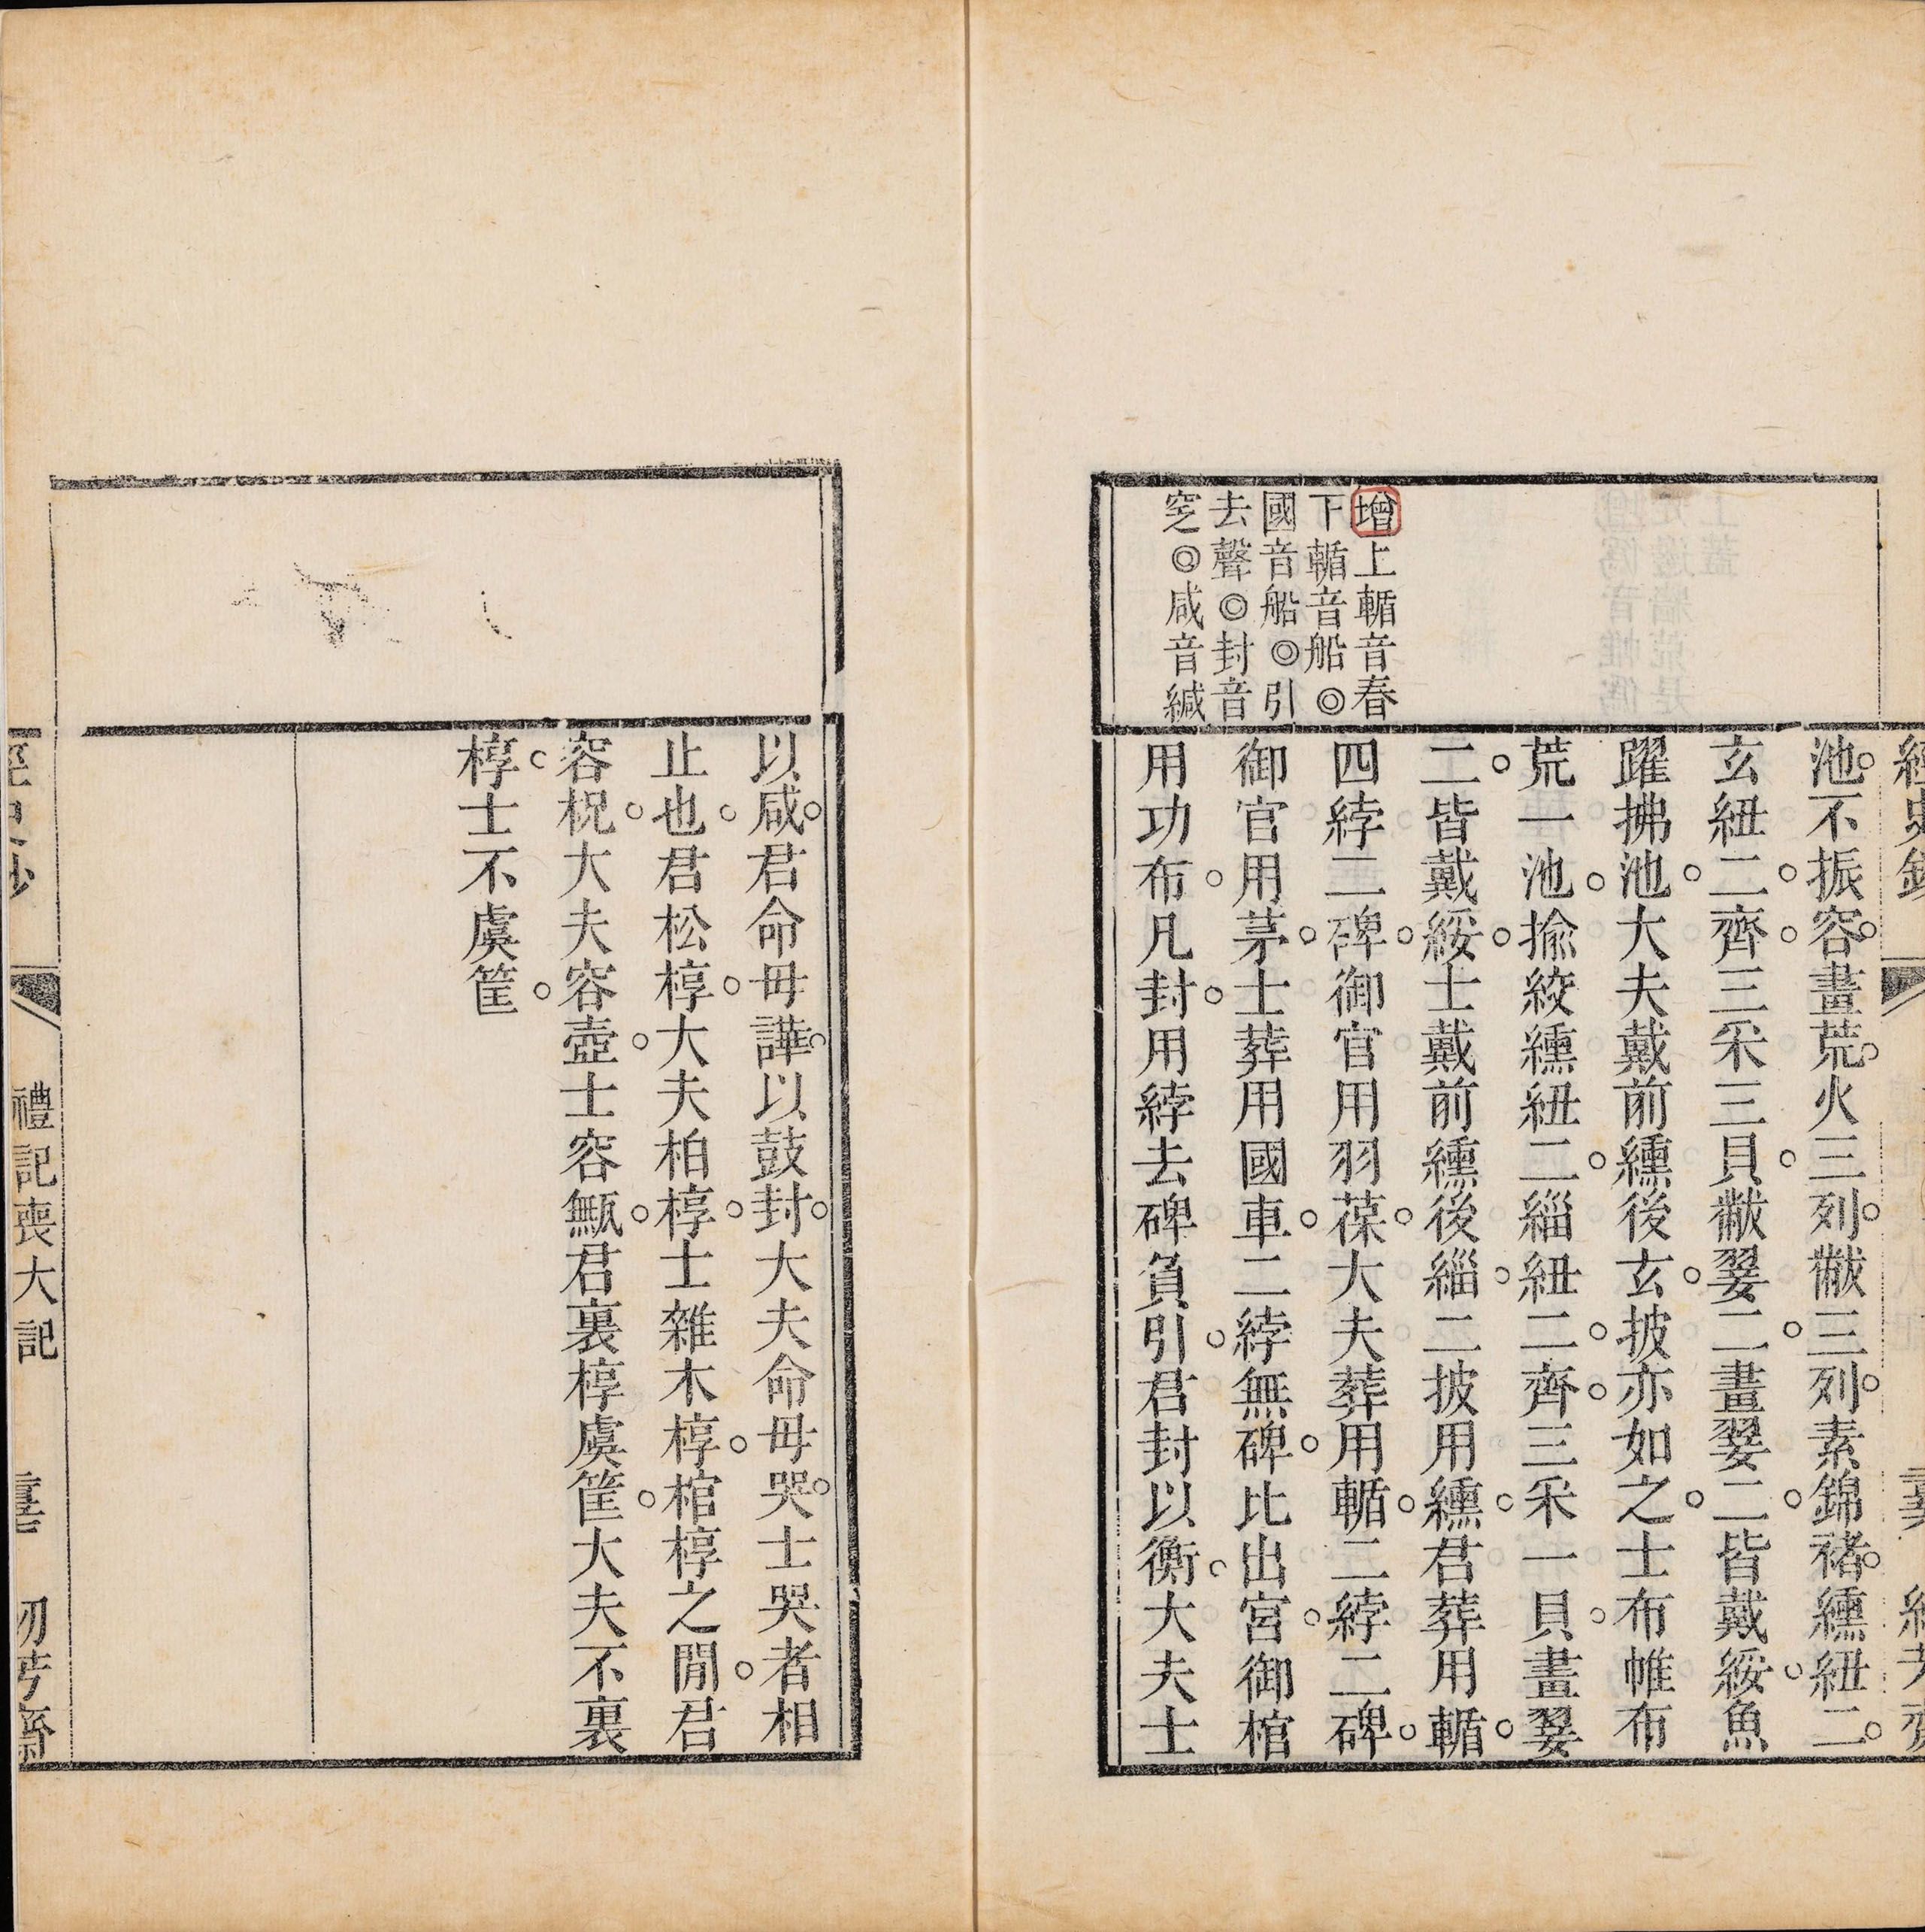 增上輴音春
下輴音船◎
國音船◎引
去聲◎封音
窆◎咸音緘
池。不振容。畫荒。火三列。黻三列。素錦褚。纁紐二。
玄紐二。齊。三采三貝。黻翣二。畫翣二。皆戴綏。魚
躍拂池。大夫戴前纁後玄。披亦如之。士布帷布
荒一池。揄絞纁紐二。緇紐二。齊。三采一貝。畫翣
二。皆戴綏。士戴前纁後緇。二披用纁。君葬用輴。
四綍二碑。御官用羽葆。大夫葬用輴。二綍二碑。
御官用茅。士葬用國車。二綍無碑。比出宮。御棺
用功布。凡封。用綍去碑負引。君封以衡。大夫士
以咸。君命毋譁。以鼓封。大夫命毋哭。士哭者相
止也。君松椁。大夫柏椁。士雜木椁。棺椁之閒。君
容柷。大夫容壺。士容甒。君裏椁虞筐。大夫不裏
椁。士不虞筐。
禮記喪大記